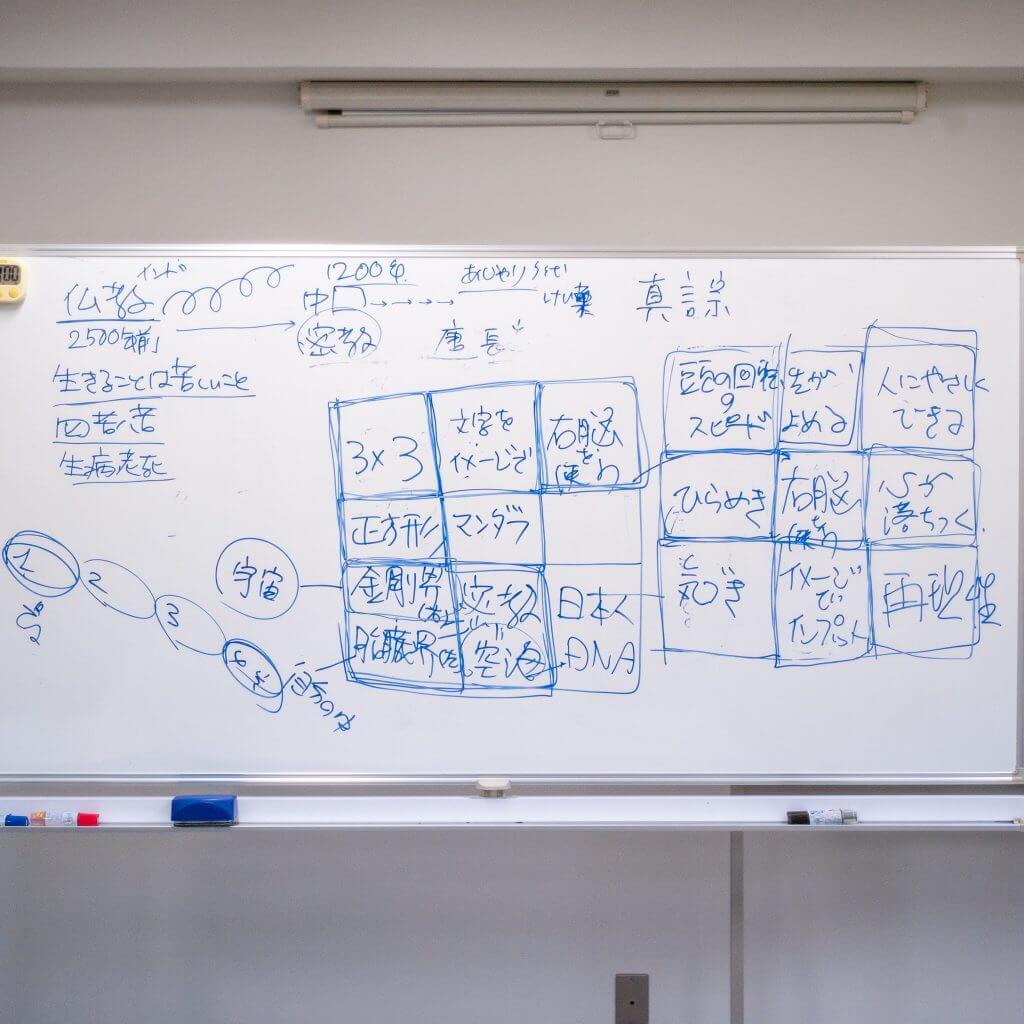 インド
仏教
2500年前
1200年
中国
密教
あじゃり
唐 長
真
生きることは苦しいこと
四苦
生病老死
3×3
文字を
イメージで
右脳
を
使
正方形
マンダラ
宇宙
金剛界
胎蔵界
密教
空海
日本人
DNA
頭の回転
の
スピード
よめる
人にやさしく
できる
ひらめき
右脳
を
使
心が
落ちつく
気づき
イメージで
インプット
再現性
1
2
3
自分の